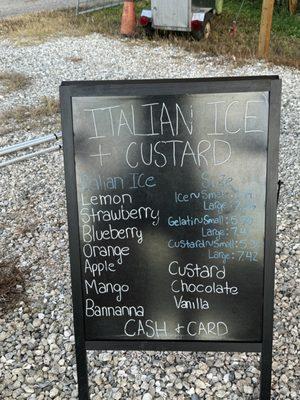 ITALIAN ICE
+ CUSTARD
Italian Ice
Lemon
Strawberry
Blueberry
Orange
Apple
Mango
Bannanna
Ice~ Small:
Large:
Gelatin~Small:
Large: 7.42
Custard~Small:
Large: 7.42
Custard
Chocolate
Vanilla
CASH + CARD